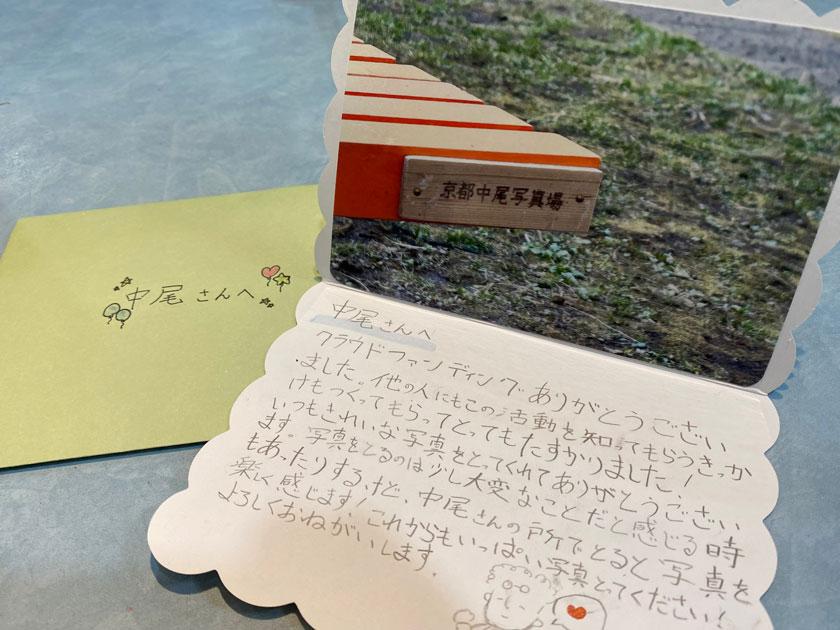 京都中尾写真場
中尾さんへ
中尾さんへ
クラウドファンディングありがとうござい
ました。他の人にもこの活動を知ってもらうきっか
けもつくってもらってとってもたすかりました！
いつもきれいな写真をとってくれてありがとうござい
ます。写真をとるのは少し大変なことだと感じる時
もあったりするけど、中尾さんの所でとると写真を
楽しく感じます！これからもいっぱい写真とってください！
よろしくおねがいします。